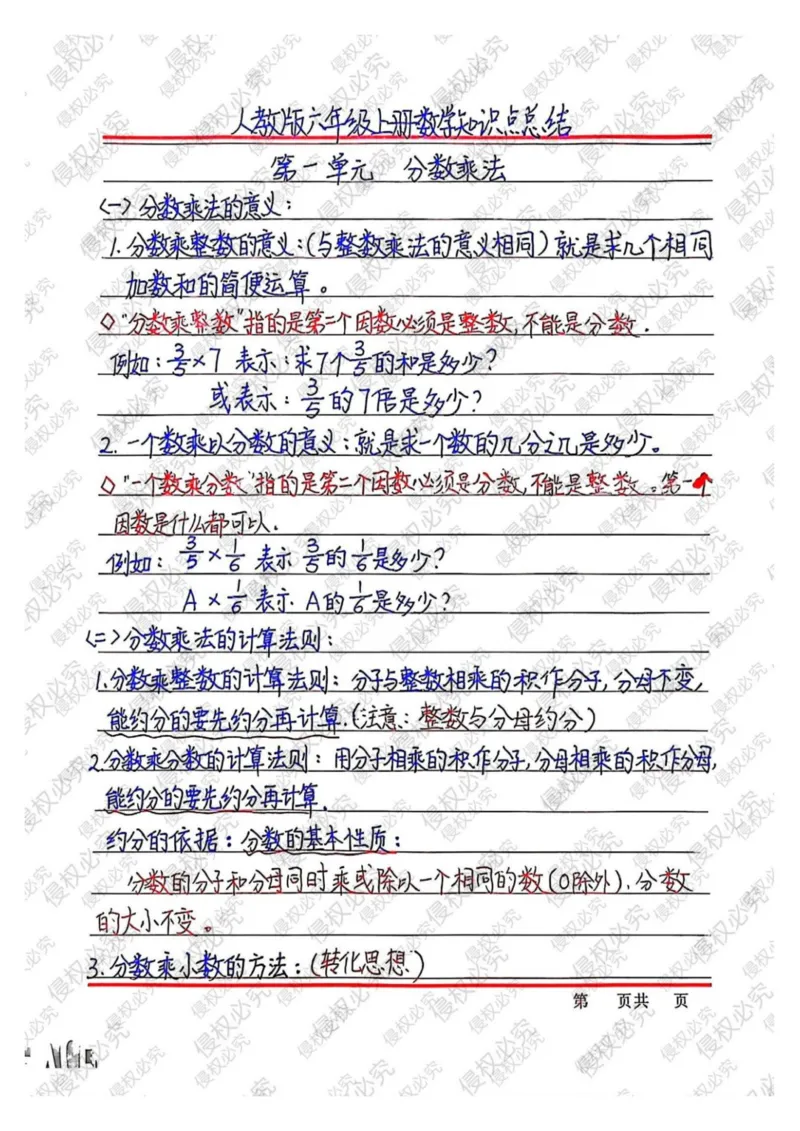 人教版六年级上册数学知识点总结
第一单元 分数乘法
<一>分数乘法的意义:
1.分数乘整数的意义:(与整数乘法的意义相同)就是求几个相同
加数和的简便运算。
◇"分数乘整数"指的是第二个因数必须是整数,不能是分数.
例如:3/5×7 表示:求7个3/5的和是多少?
或表示:3/5的7倍是多少?
2.一个数乘以分数的意义:就是求一个数的几分之几是多少。
◇"一个数乘分数"指的是第二个因数必须是分数,不能是整数。第一个
因数是什么都可以.
例如: 3/5×1/6 表示 3/5的1/6是多少?
A×1/6 表示 A的1/6是多少?
<二>分数乘法的计算法则:
1.分数乘整数的计算法则:分子与整数相乘的积作分子,分母不变,
能约分的要先约分再计算.(注意:整数与分母约分)
2.分数乘分数的计算法则:用分子相乘的积作分子,分母相乘的积作分母,
能约分的要先约分再计算.
约分的依据:分数的基本性质:
分数的分子和分母同时乘或除以一个相同的数(0除外),分数
的大小不变。
3.分数乘小数的方法:(转化思想)
第 页共 页
侵权必究